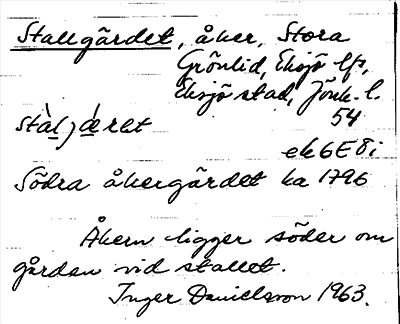 Stallgärdet, åker, Stora
Grönlid, Eksjö lfs,
Eksjö stad, Jönk. l.
54
stàl̲jæ̀ret
ek 6E8i
Södra åkergärdet ka 1796
Åkern ligger söder om
gården vid stallet.
Inger Danielsson 1963.